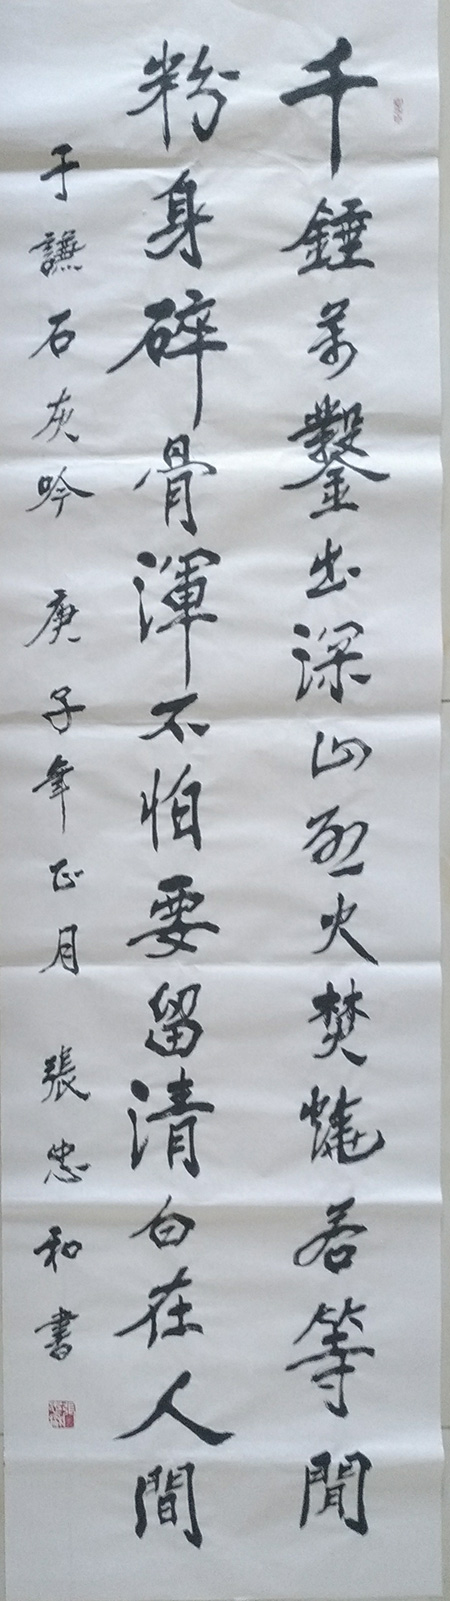 千錘萬鑿出深山烈火焚燒若等閒
粉身碎骨渾不怕要留清白在人間
于謙石灰吟 庚子年正月 張忠和書